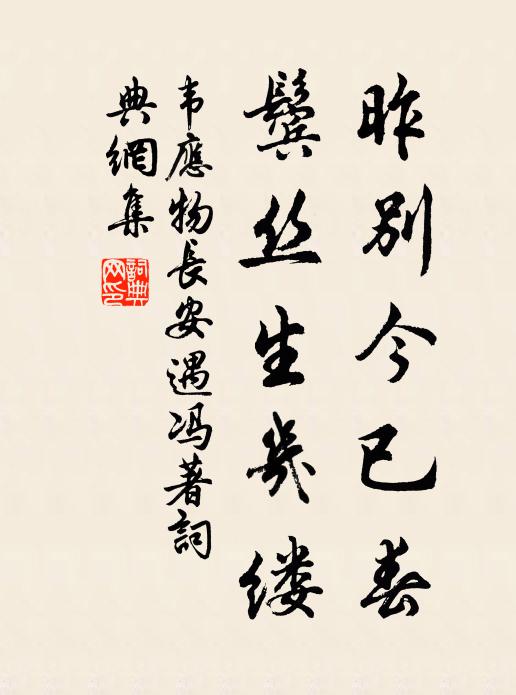 昨别今已春
鬓丝生幾缕
韦應物長安遇冯著詞
典網集
詞典网印